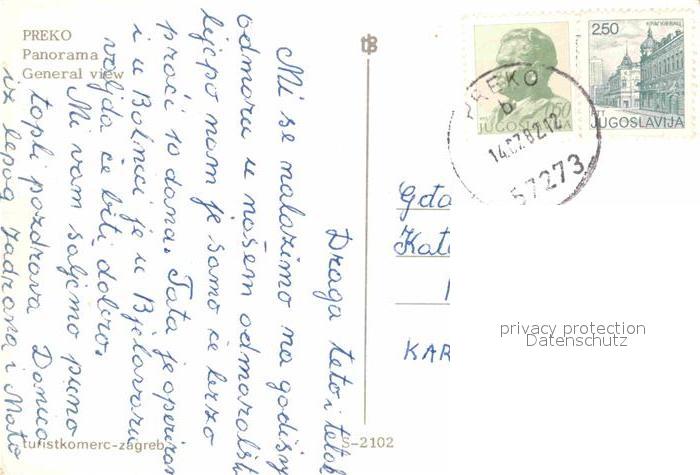 PREKO
Panorama
General view
Draga teto i tetak
Mi se nalazimo na godišnj
odmoru u našem odmarališt
lijepo nam je samo će brzo
proći 10 dana. Tata je operiran
i u Bolnici je u Bjelovaru
valjda će biti dobro.
Mi vam šaljemo puno
topli pozdrava Danica
iz lepog Jadrana i Mato
turistkomerc-zagreb
S-2102
JUGOSLAVIJA
2.50
КРАГУЈЕВАЦ
JUGOSLAVIJA
PREKO
b
14.07.82.12
57273
Gđa
Kat
KAR
privacy protection
Datenschutz